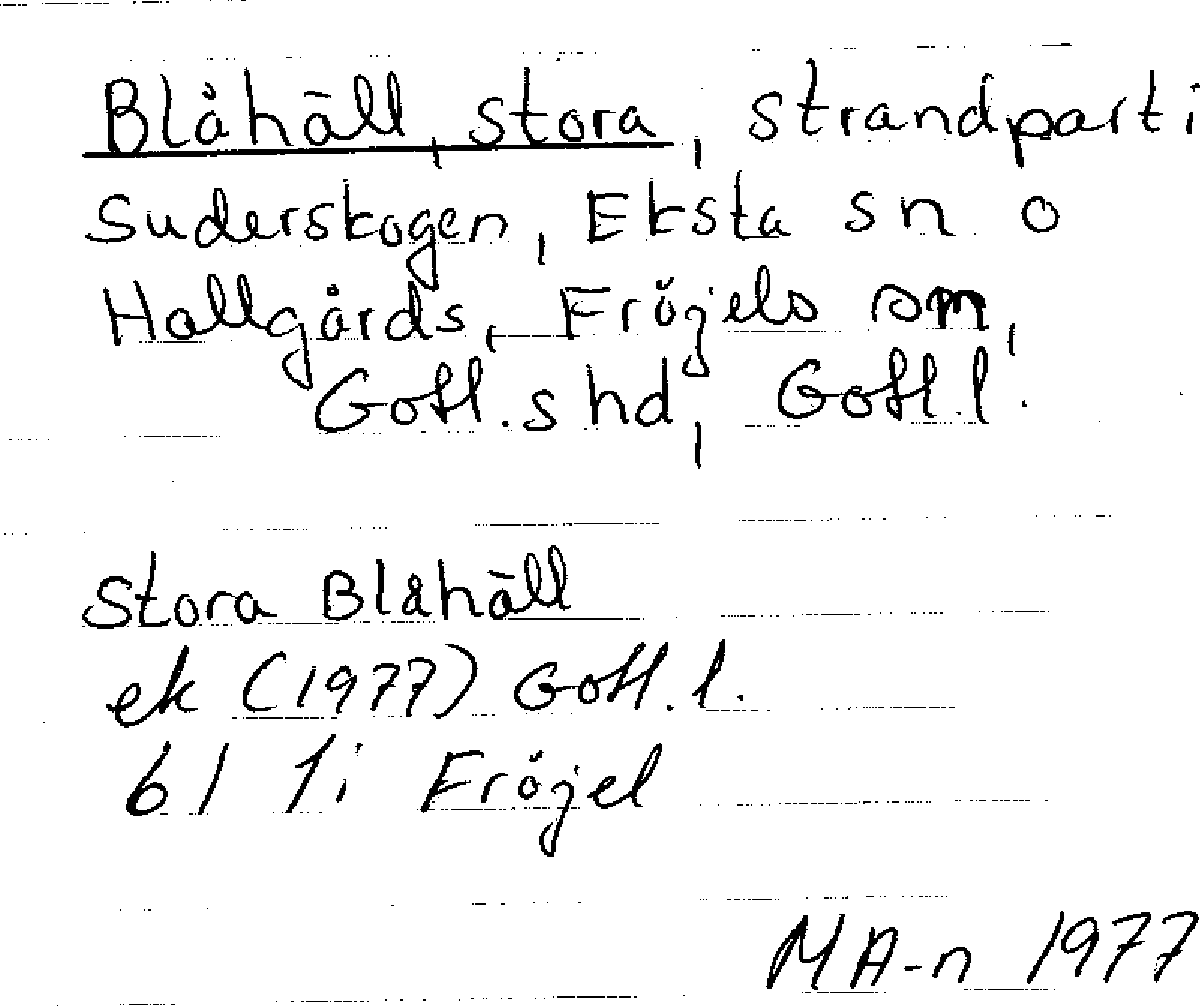 Blåhäll, stora, strandparti
Suderskogen, Eksta sn o
Hallgårds, Fröjels sn,
Gotl.s hd, Gotl.l.
Stora Blåhäll
ek (1977) Gotl.l.
6I 1i Fröjel
MA-n 1977